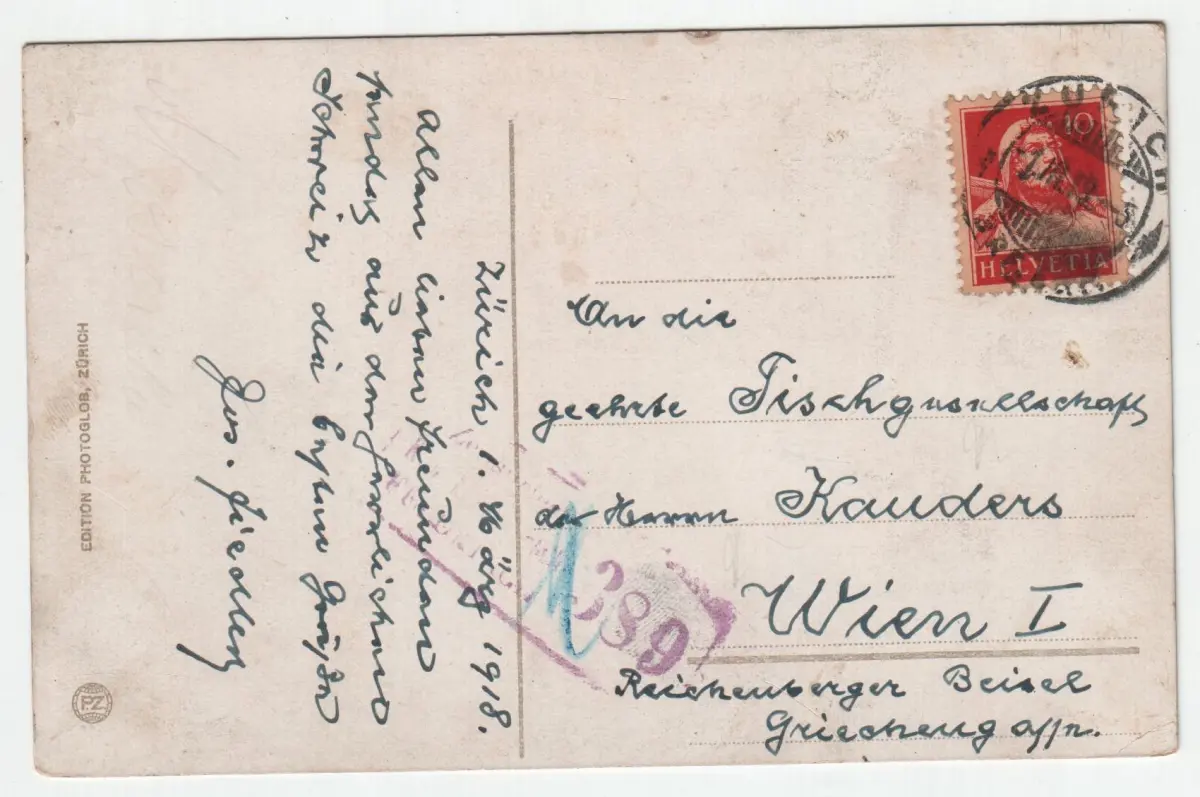 Zürich 1. März 1918.
Allen lieben Freunden
sendet aus der herrlichen
Schweiz die besten Grüße
Jos. Fiedler
An die
geehrte Tischgesellschaft
des Herrn Kauders
Wien I
Reichenberger Beisel
Griechengasse.
10
HELVETIA
ZÜRICH
289
EDITION PHOTOGLOB, ZÜRICH
PZ